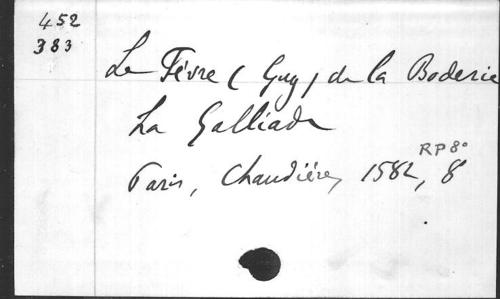 452
383
Le Fèvre (Guy) de la Boderie
La Galliade
RP 8°
Paris, Chaudière, 1582, 8